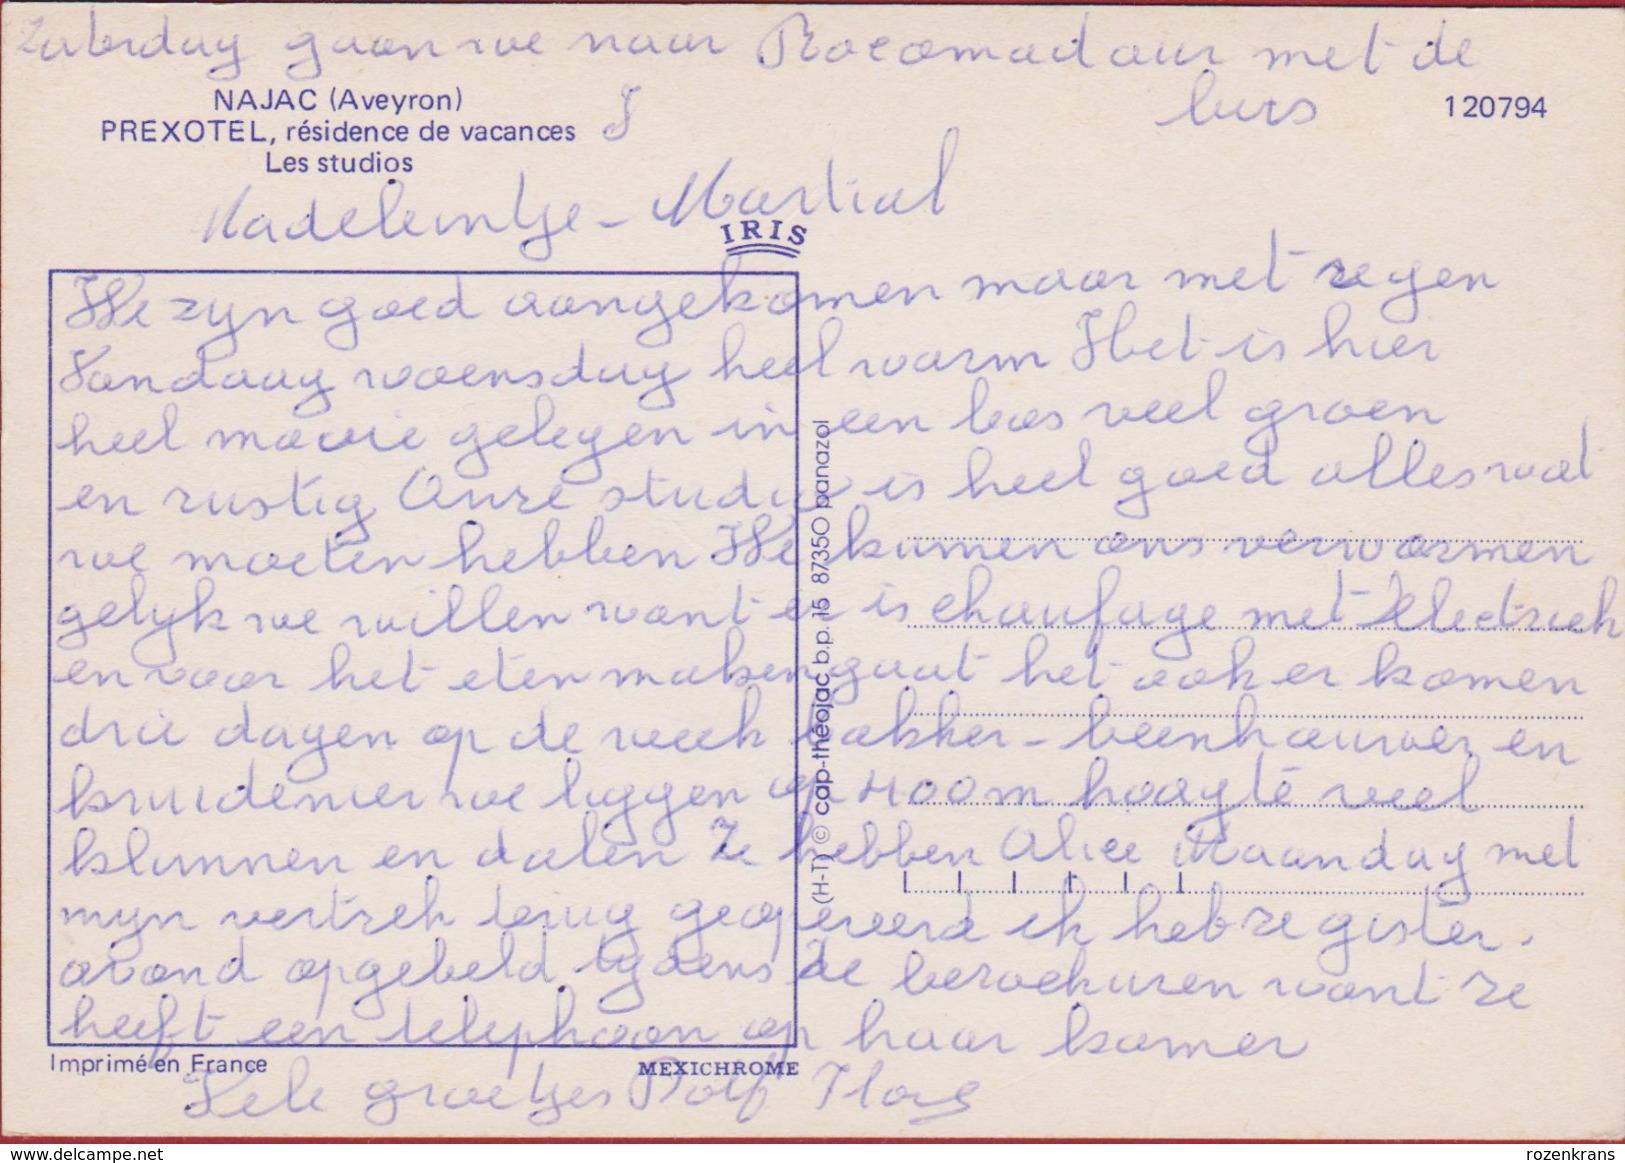 Zaterdag gaan we naar Rocomadour met de
bus
120794
NAJAC (Aveyron)
PREXOTEL, résidence de vacances
Les studios
Madeleintje - Martial
IRIS
We zyn goed aangekomen maar met regen
Vandaag woensdag heel warm Het is hier
heel mooie gelegen in een bos veel groen
en rustig Onze studio is heel goed alles wat
we moeten hebben We kunnen ons verwarmen
gelyk we willen want er is chaufage met Electriek
en voor het eten maken gaat het ook er komen
drie dagen op de week bakker - beenhouwer en
kruidenier we liggen op 400 m hoogte veel
klimmen en dalen Ze hebben Alice Maandag met
myn vertrek terug geopereerd ik heb ze gister.
avond opgebeld tydens de bezoekuren want ze
heeft een telephoon op haar kamer
Imprimé en France
MEXICHROME
Vele groetjes Dolf
(H-T) © cap-théojac b.p. 15 87350 panazol
delcampe.net
rozenkrans